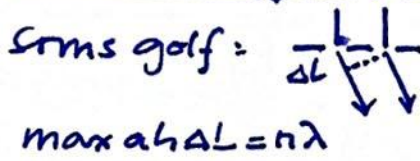 soms golf:
ΔL
max als ΔL = nλ